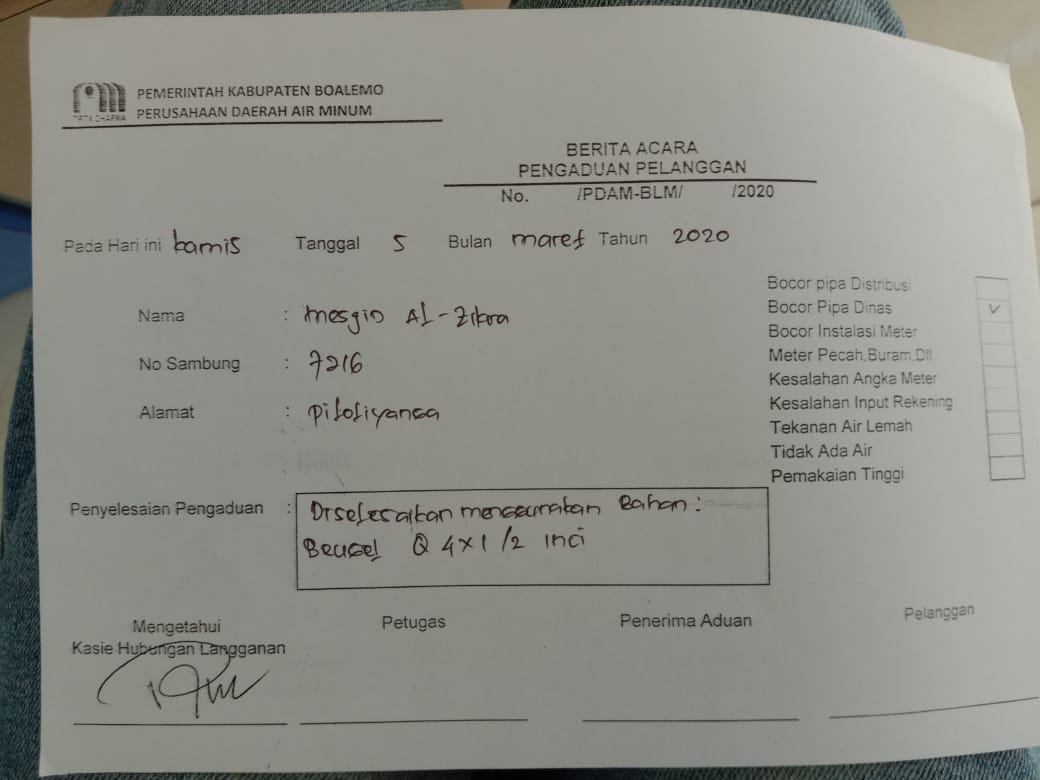 PEMERINTAH KABUPATEN BOALEMO
PERUSAHAAN DAERAH AIR MINUM
TIRTA DHARMA
BERITA ACARA
PENGADUAN PELANGGAN
No. /PDAM-BLM/ /2020
Pada Hari ini kamis Tanggal 5 Bulan maret Tahun 2020
Nama : mesjid Al-Zikra
No Sambung : 7216
Alamat :
Bocor pipa Distribusi
Bocor Pipa Dinas ✓
Bocor Instalasi Meter
Meter Pecah,Buram,Dll
Kesalahan Angka Meter
Kesalahan Input Rekening
Tekanan Air Lemah
Tidak Ada Air
Pemakaian Tinggi
Penyelesaian Pengaduan : Diselesaikan menggunakan Bahan :
4x1/2 inci
Mengetahui
Kasie Hubungan Langganan
Petugas
Penerima Aduan
Pelanggan